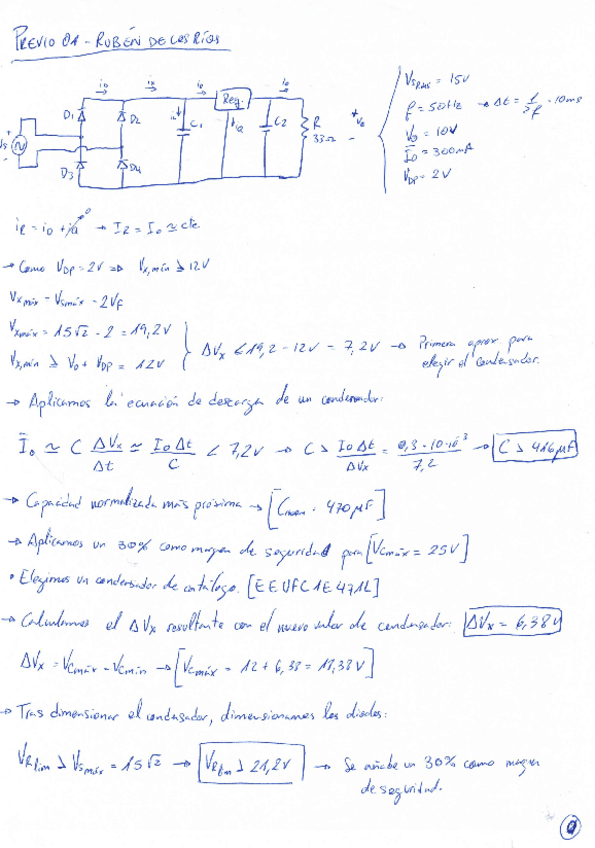 PREVIO 01 - RUBÉN DE LOS RÍOS
Vs
+
-
D1
D2
D3
D4
C1
Reg.
C2
R
33Ω
+
Vo
-
VsRMS = 15V
f = 50Hz → Δt = 1/2f = 10ms
Vo = 10V
Io = 300mA
VDP = 2V
→ Como VDP = 2V ⇒ Vx,mín ≥ 12V
Vxmáx = Vsmáx - 2VF
Vxmáx = 15√2 - 2 = 19,2V
Vx,min ≥ Vo + VDP = 12V
ΔVx < 19,2 - 12V = 7,2V → Primera aprox para
elegir el condensador.
→ Aplicamos la ecuación de descarga de un condensador:
Īo ≃ C ΔVx/Δt ≃ IoΔt/C < 7,2V → C > IoΔt/ΔVx = 0,3 · 10·10⁻³/7,2 → C > 416µF
→ Capacidad normalizada más próxima → [Cnom = 470µF]
→ Aplicamos un 30% como margen de seguridad para [Vcmáx = 25V]
• Elegimos un condensador de catálogo. [EEUFC1E471L]
→ Calculamos el ΔVx resultante con el nuevo valor de condensador: ΔVx = 6,38V
ΔVx = Vcmáx - Vcmín → [Vcmáx = 12 + 6,38 = 18,38V]
→ Tras dimensionar el condensador, dimensionamos los diodos:
≥ Vsmáx = 15√2 → ≥ 21,2V → Se añade un 30% como margen
de seguridad.